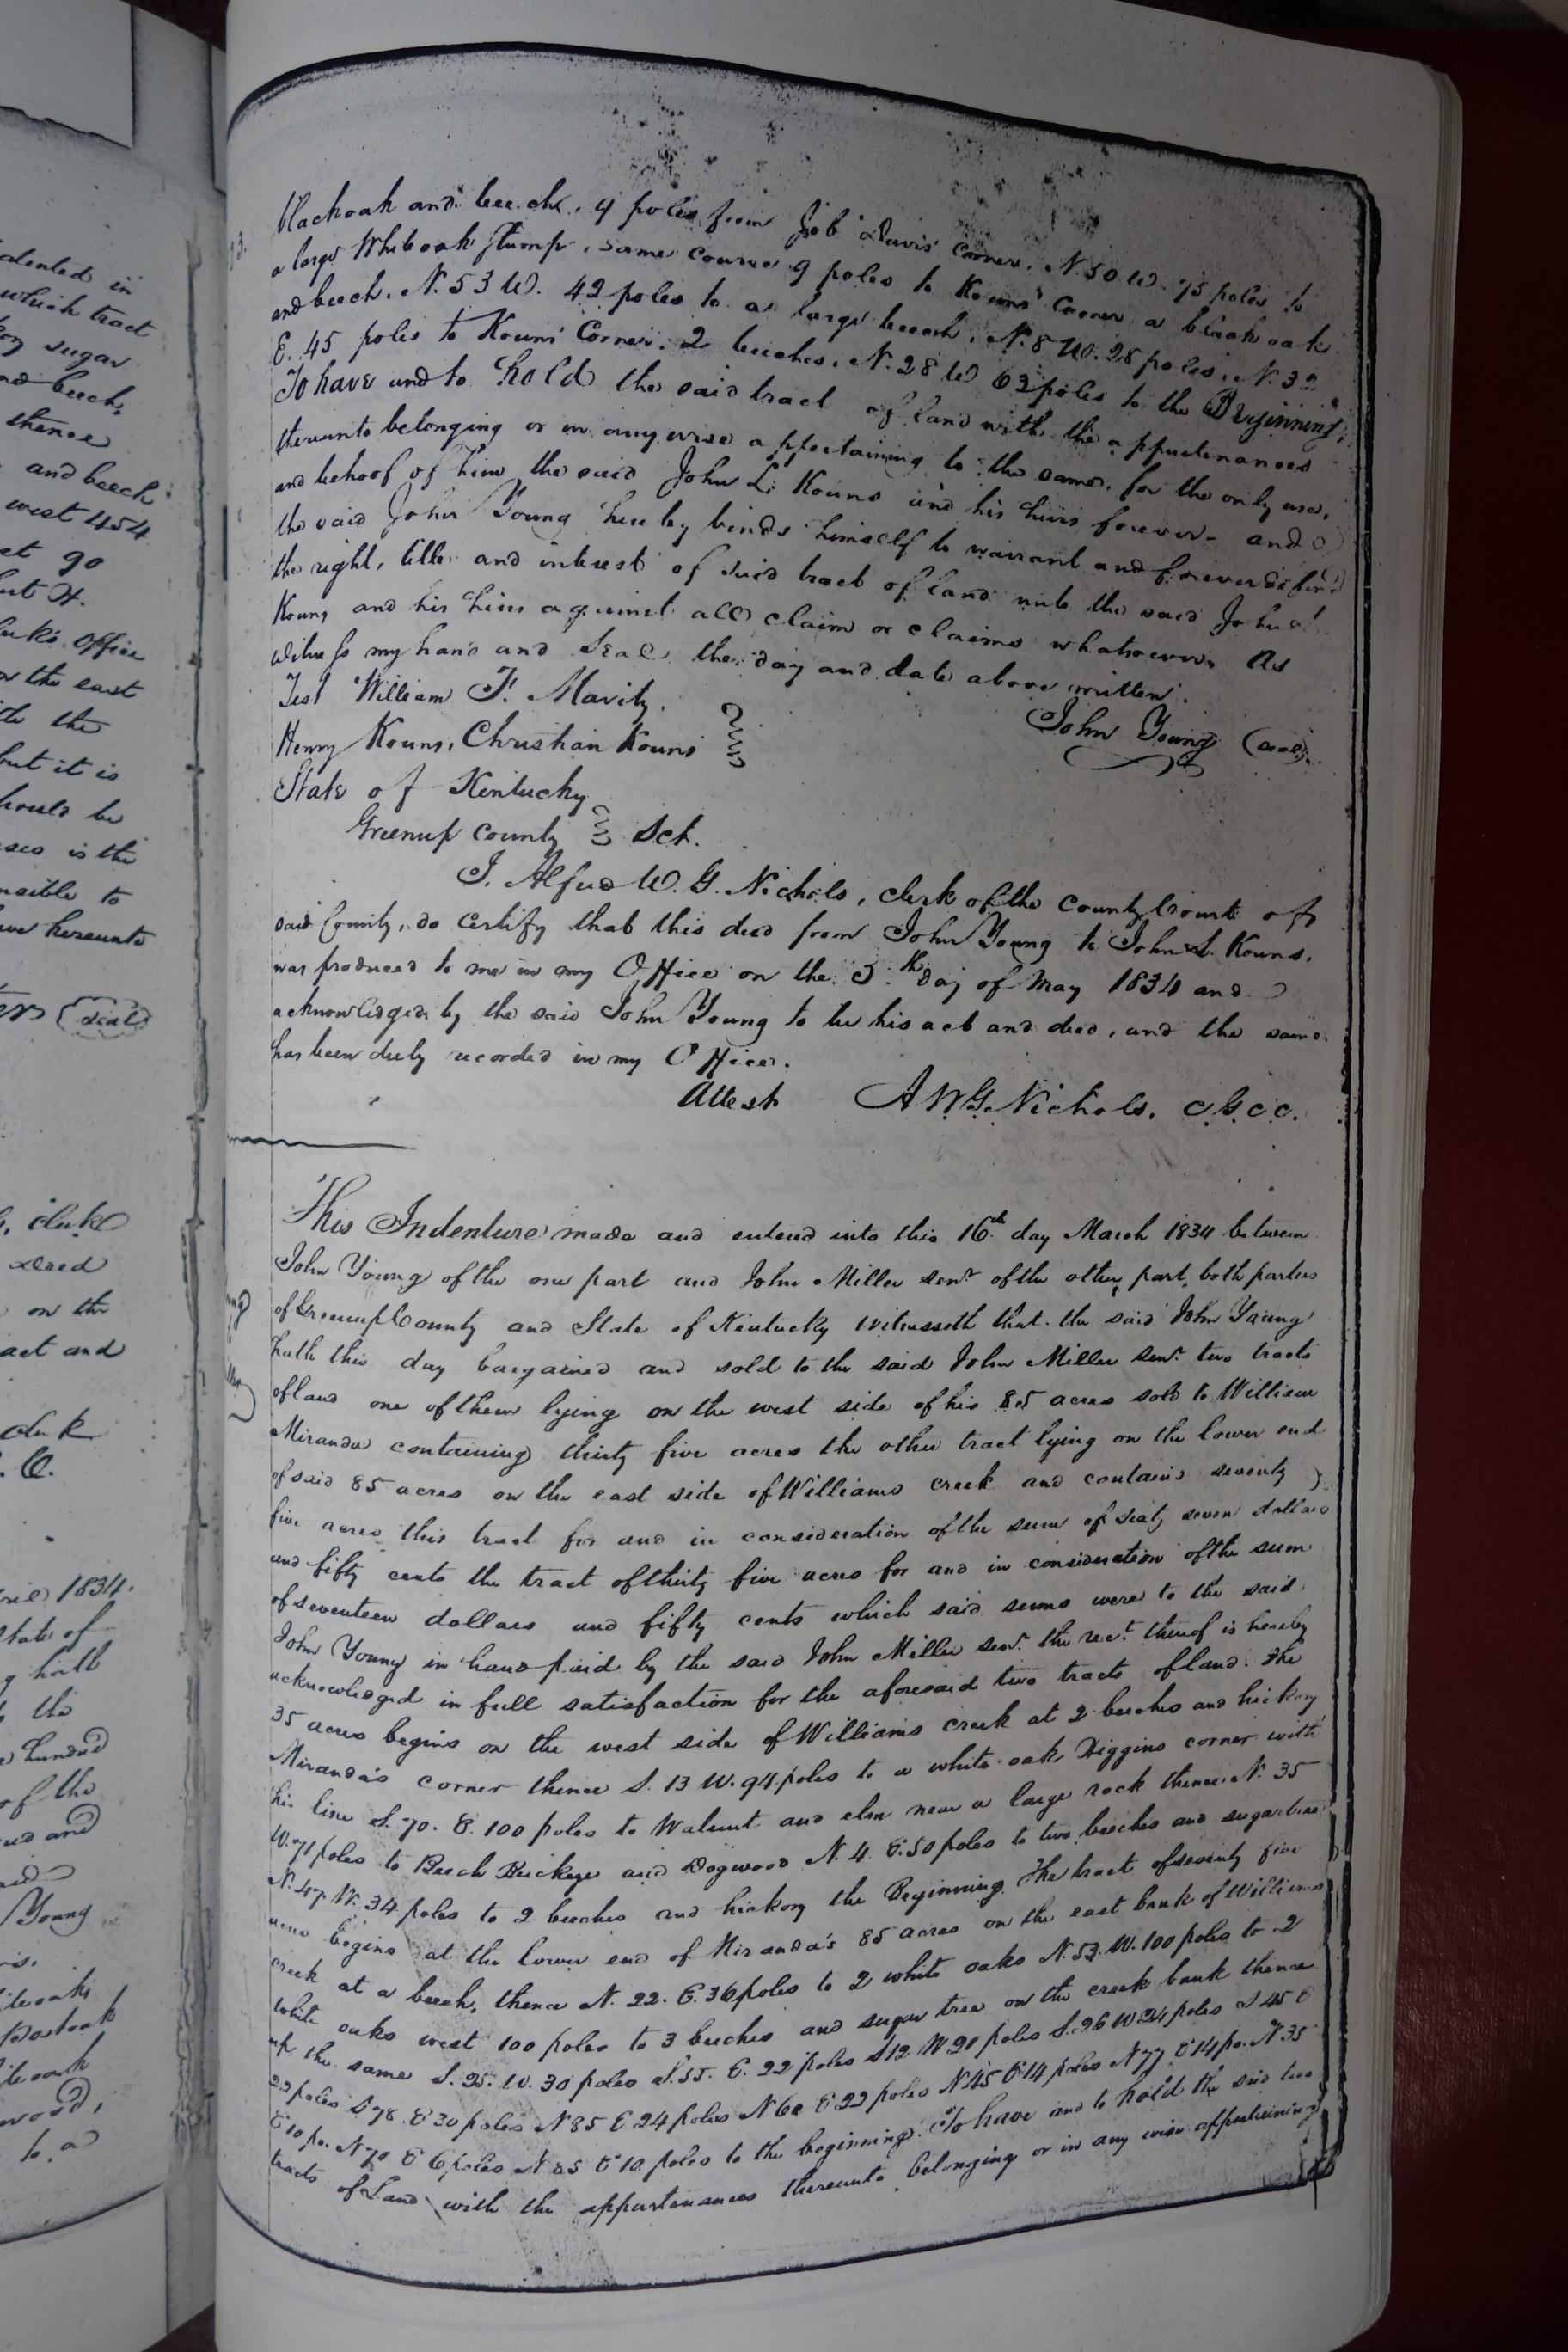 blackoak and beech, 4 poles from Job Davis' Corner, N. 50 W. 75 poles to
a large Whiteoak Stump, same course 9 poles to Kouns' Corner a black oak
and beech. N. 53 W. 42 poles to a large beech, N. 8 W. 28 poles, N. 32
E. 45 poles to Kouns' Corner. 2 beeches, N. 28 W 62 poles to the Beginning,
To have and to hold the said tract of land with the appurtenances
thereunto belonging or in any wise appertaining to the same, for the only use,
and behoof of him the said John L. Kouns and his heirs forever - and
the said John Young hereby binds himself to warrant and forever defend
the right, title and interest of said tract of land unto the said John
Kouns and his heirs against all claim or claims whatsoever. As
witness my hand and Seal the day and date above written.
Test William F. Mavity.
John Young (seal).
Henry Kouns, Christian Kouns
State of Kentucky
Greenup County Sct.
I. Alfred W. G. Nichols, clerk of the County Court of
said County, do certify that this deed from John Young to John L. Kouns,
was produced to me in my Office on the 5th day of May 1834 and
acknowledged by the said John Young to be his act and deed, and the same
has been duly recorded in my Office.
Attest A W G. Nichols. C. G. C. C.
This Indenture made and entered into this 16th day March 1834 between
John Young of the one part and John Miller senr. of the other part, both parties
of Greenup County and State of Kentucky Witnesseth that the said John Young
hath this day bargained and sold to the said John Miller senr. two tracts
of land one of them lying on the west side of his 85 acres sold to William
Miranda containing thirty five acres the other tract lying on the lower end
of said 85 acres on the east side of Williams creek and contains seventy
five acres this tract for and in consideration of the sum of sixty seven dollars
and fifty cents the tract of thirty five acres for and in consideration of the sum
of seventeen dollars and fifty cents which said sums were to the said
John Young in hand paid by the said John Miller senr. the rect. thereof is hereby
acknowledged in full satisfaction for the aforesaid two tracts of land. The
35 acres begins on the west side of Williams creek at 2 beeches and hickory
Miranda's corner thence S. 13 W. 94 poles to a white oak Higgins corner with
his line S. 70. E. 100 poles to Walnut and elm near a large rock thence N. 35
W. 71 poles to Beech Buckeye and Dogwood N. 4. E. 50 poles to two beeches and sugartree
N. 47 W. 34 poles to 2 beeches and hickory the Beginning. The tract of seventy five
acres begins at the lower end of Miranda's 85 acres on the east bank of Williams
creek at a beech, thence N. 22. E. 36 poles to 2 white oaks N. 53. W. 100 poles to 2
white oaks west 100 poles to 3 beeches and sugar tree on the creek bank thence
up the same S. 25. W. 30 poles S. 55. E. 22 poles S 12 W 20 poles S. 26 W 24 poles S 45 E
22 poles S 78. E 30 poles N 85 E 24 poles N 60 E 22 poles N 45 E 14 poles N 77 E 14 po. N 35
E 10 po. N 70 E 6 poles N 85 E 10 poles to the beginning. To have and to hold the said two
tracts of Land with the appurtenances thereunto belonging or in any wise appertaining